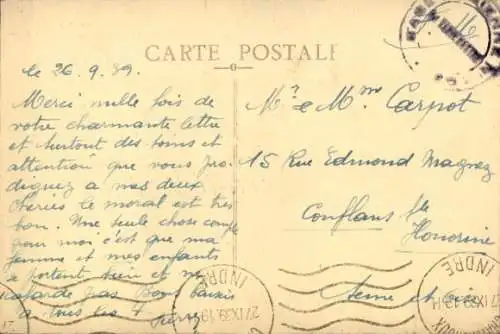 CARTE POSTALE
le 26.9.39.
Merci mille fois de
votre charmante lettre
et surtout des soins et
attention que vous pro
diguez a mes deux
cheries le moral est très
bon. Une seule chose compte
pour moi c'est que ma
femme et mes enfants
se portent bien et ne
pas Bons baisers
a tous les
Pierre
Mr et Mme Carpot
15 Rue Edmond Magnez
Conflans Ste
Honorine
Seine et Oise
INDRE
INDRE